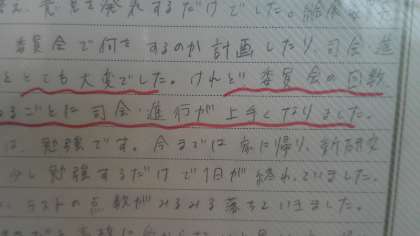 え、意見を発表するだけでした。給体
委員会で何をするのか計画したり、司会・進
とても大変でした。けれど委員会の回数
るごとに司会・進行が上手くなりました。
は、勉強です。今までは家に帰り、新研究
少し勉強するだけで1日が終わっていました。
テストの点数がみるみる落ちていきました。